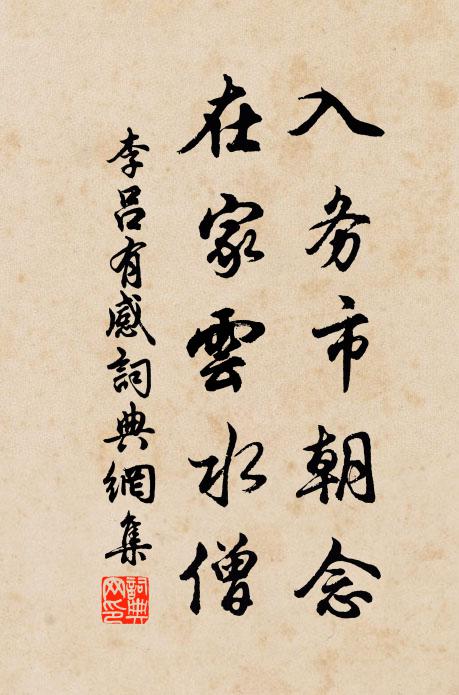 入务市朝念
在家雲水僧
李吕有感詞典網集
詞典网印